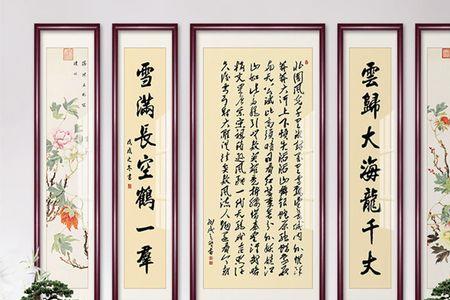 雲歸大海龍千丈
北國風光千里冰封萬里雪飄望長城內外惟餘
莽莽大河上下頓失滔滔山舞銀蛇原馳蠟象欲
與天公試比高須晴日看紅裝素裹分外妖嬈江
山如此多嬌引無數英雄競折腰惜秦皇漢武略
輸文采唐宗宋祖稍遜風騷一代天驕成吉思汗
只識彎弓射大雕俱往矣數風流人物還看今朝
雪滿長空鶴一羣
戊戌之冬書